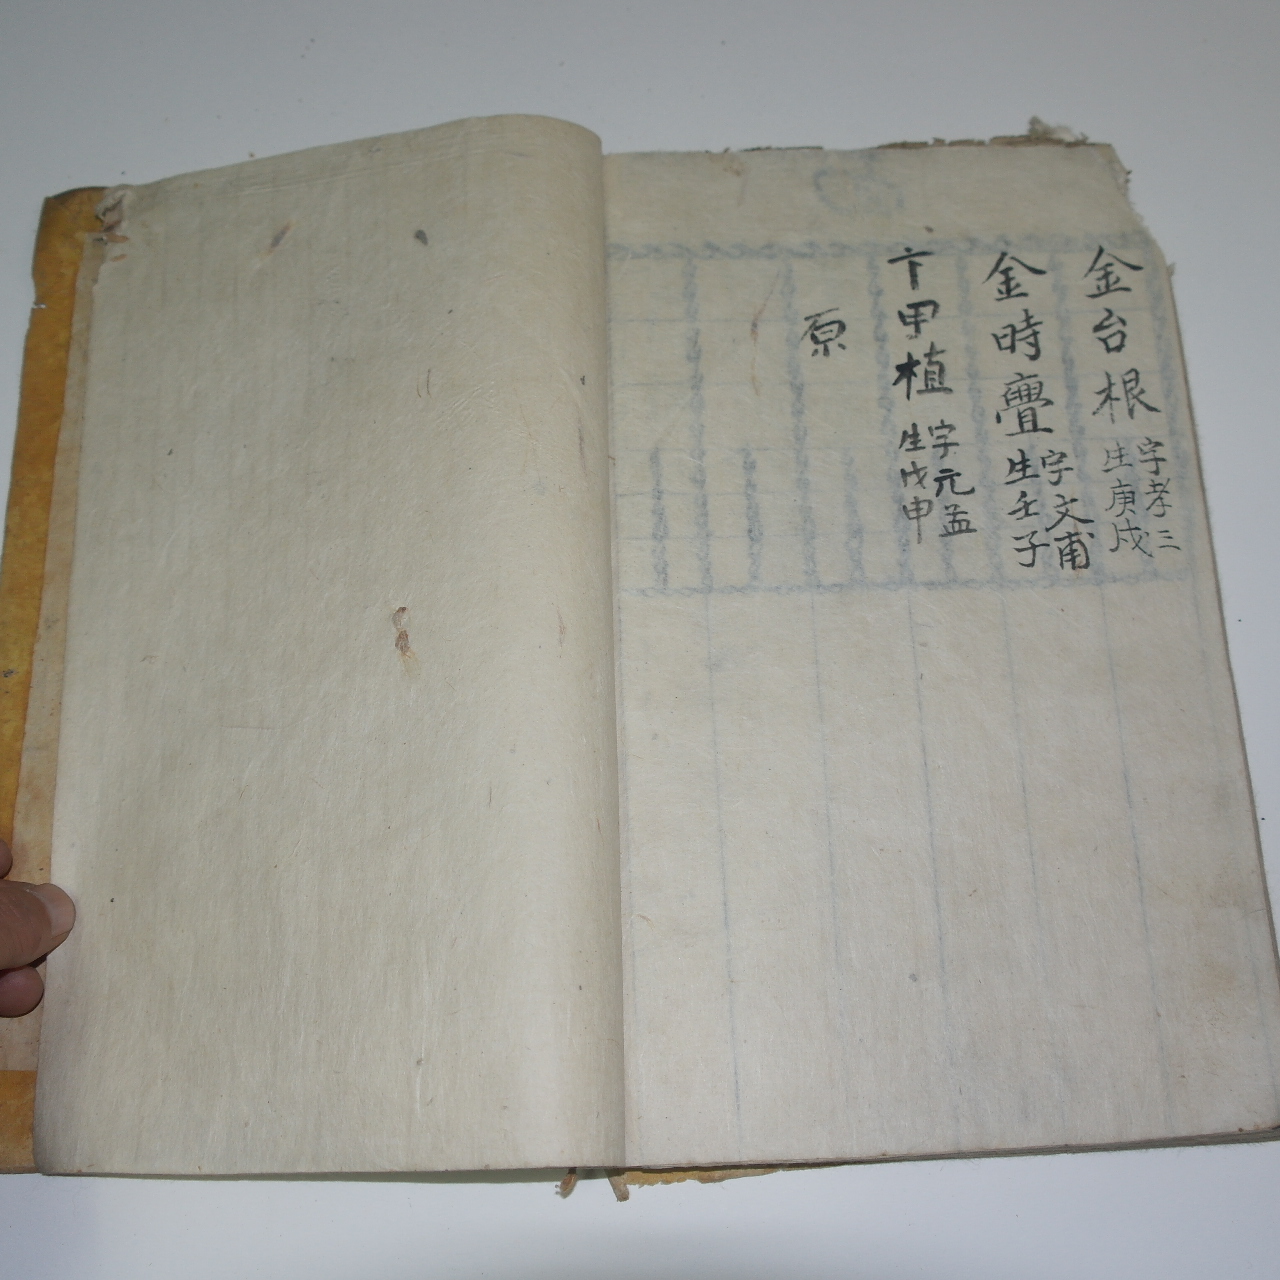 金台根 字孝三 生庚戌
金時亹 字文甫 生壬子
卞甲植 字元益 生戊申
原